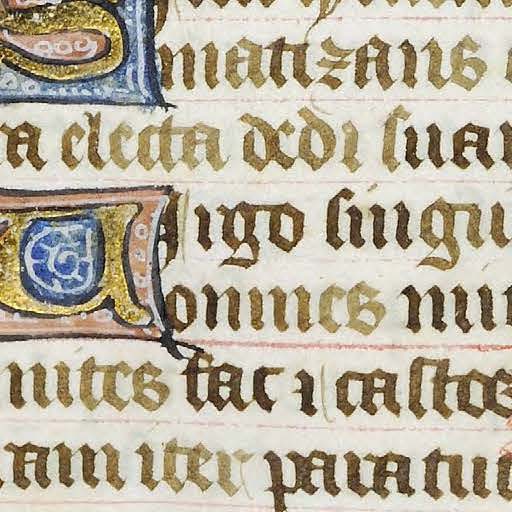 matizans
a electa dedi sua
irgo singu
omnes mit
mites fac ⁊ castos
am iter paratu